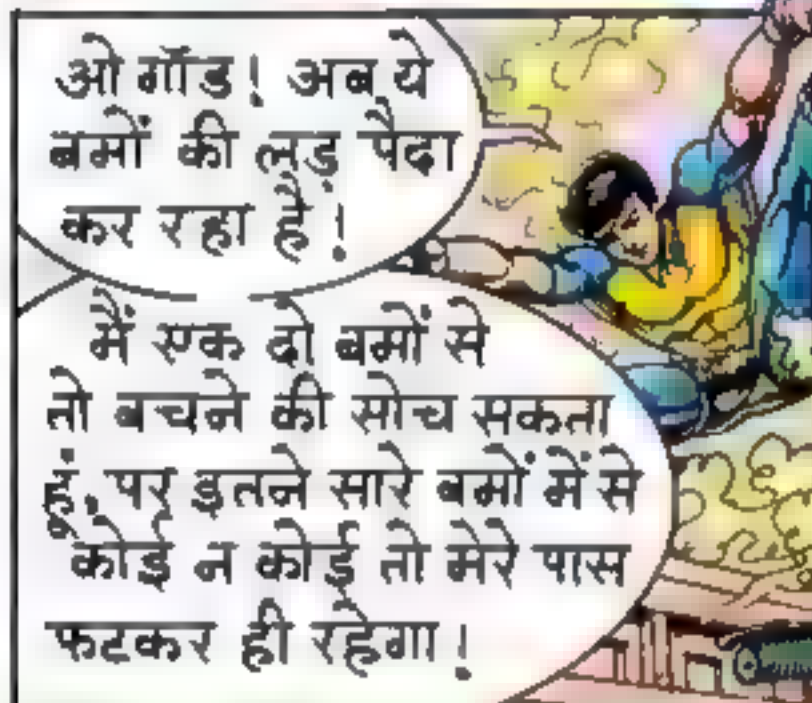 ओ गॉड! अब ये
बमों की लड़ पैदा
कर रहा है!
मैं एक दो बमों से
तो बचने की सोच सकता
हूं, पर इतने सारे बमों में से
कोई न कोई तो मेरे पास
फटकर ही रहेगा!